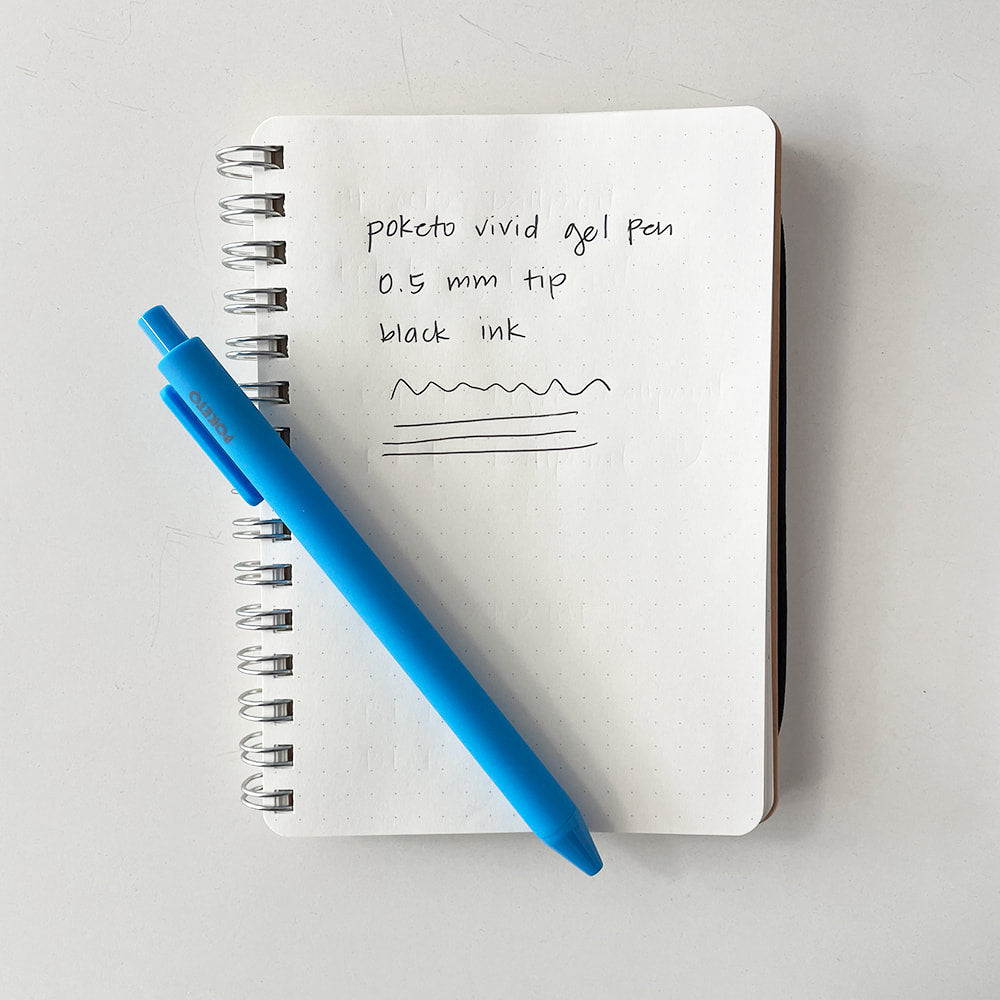 poketo vivid gel pen
0.5 mm tip
black ink
POKETO